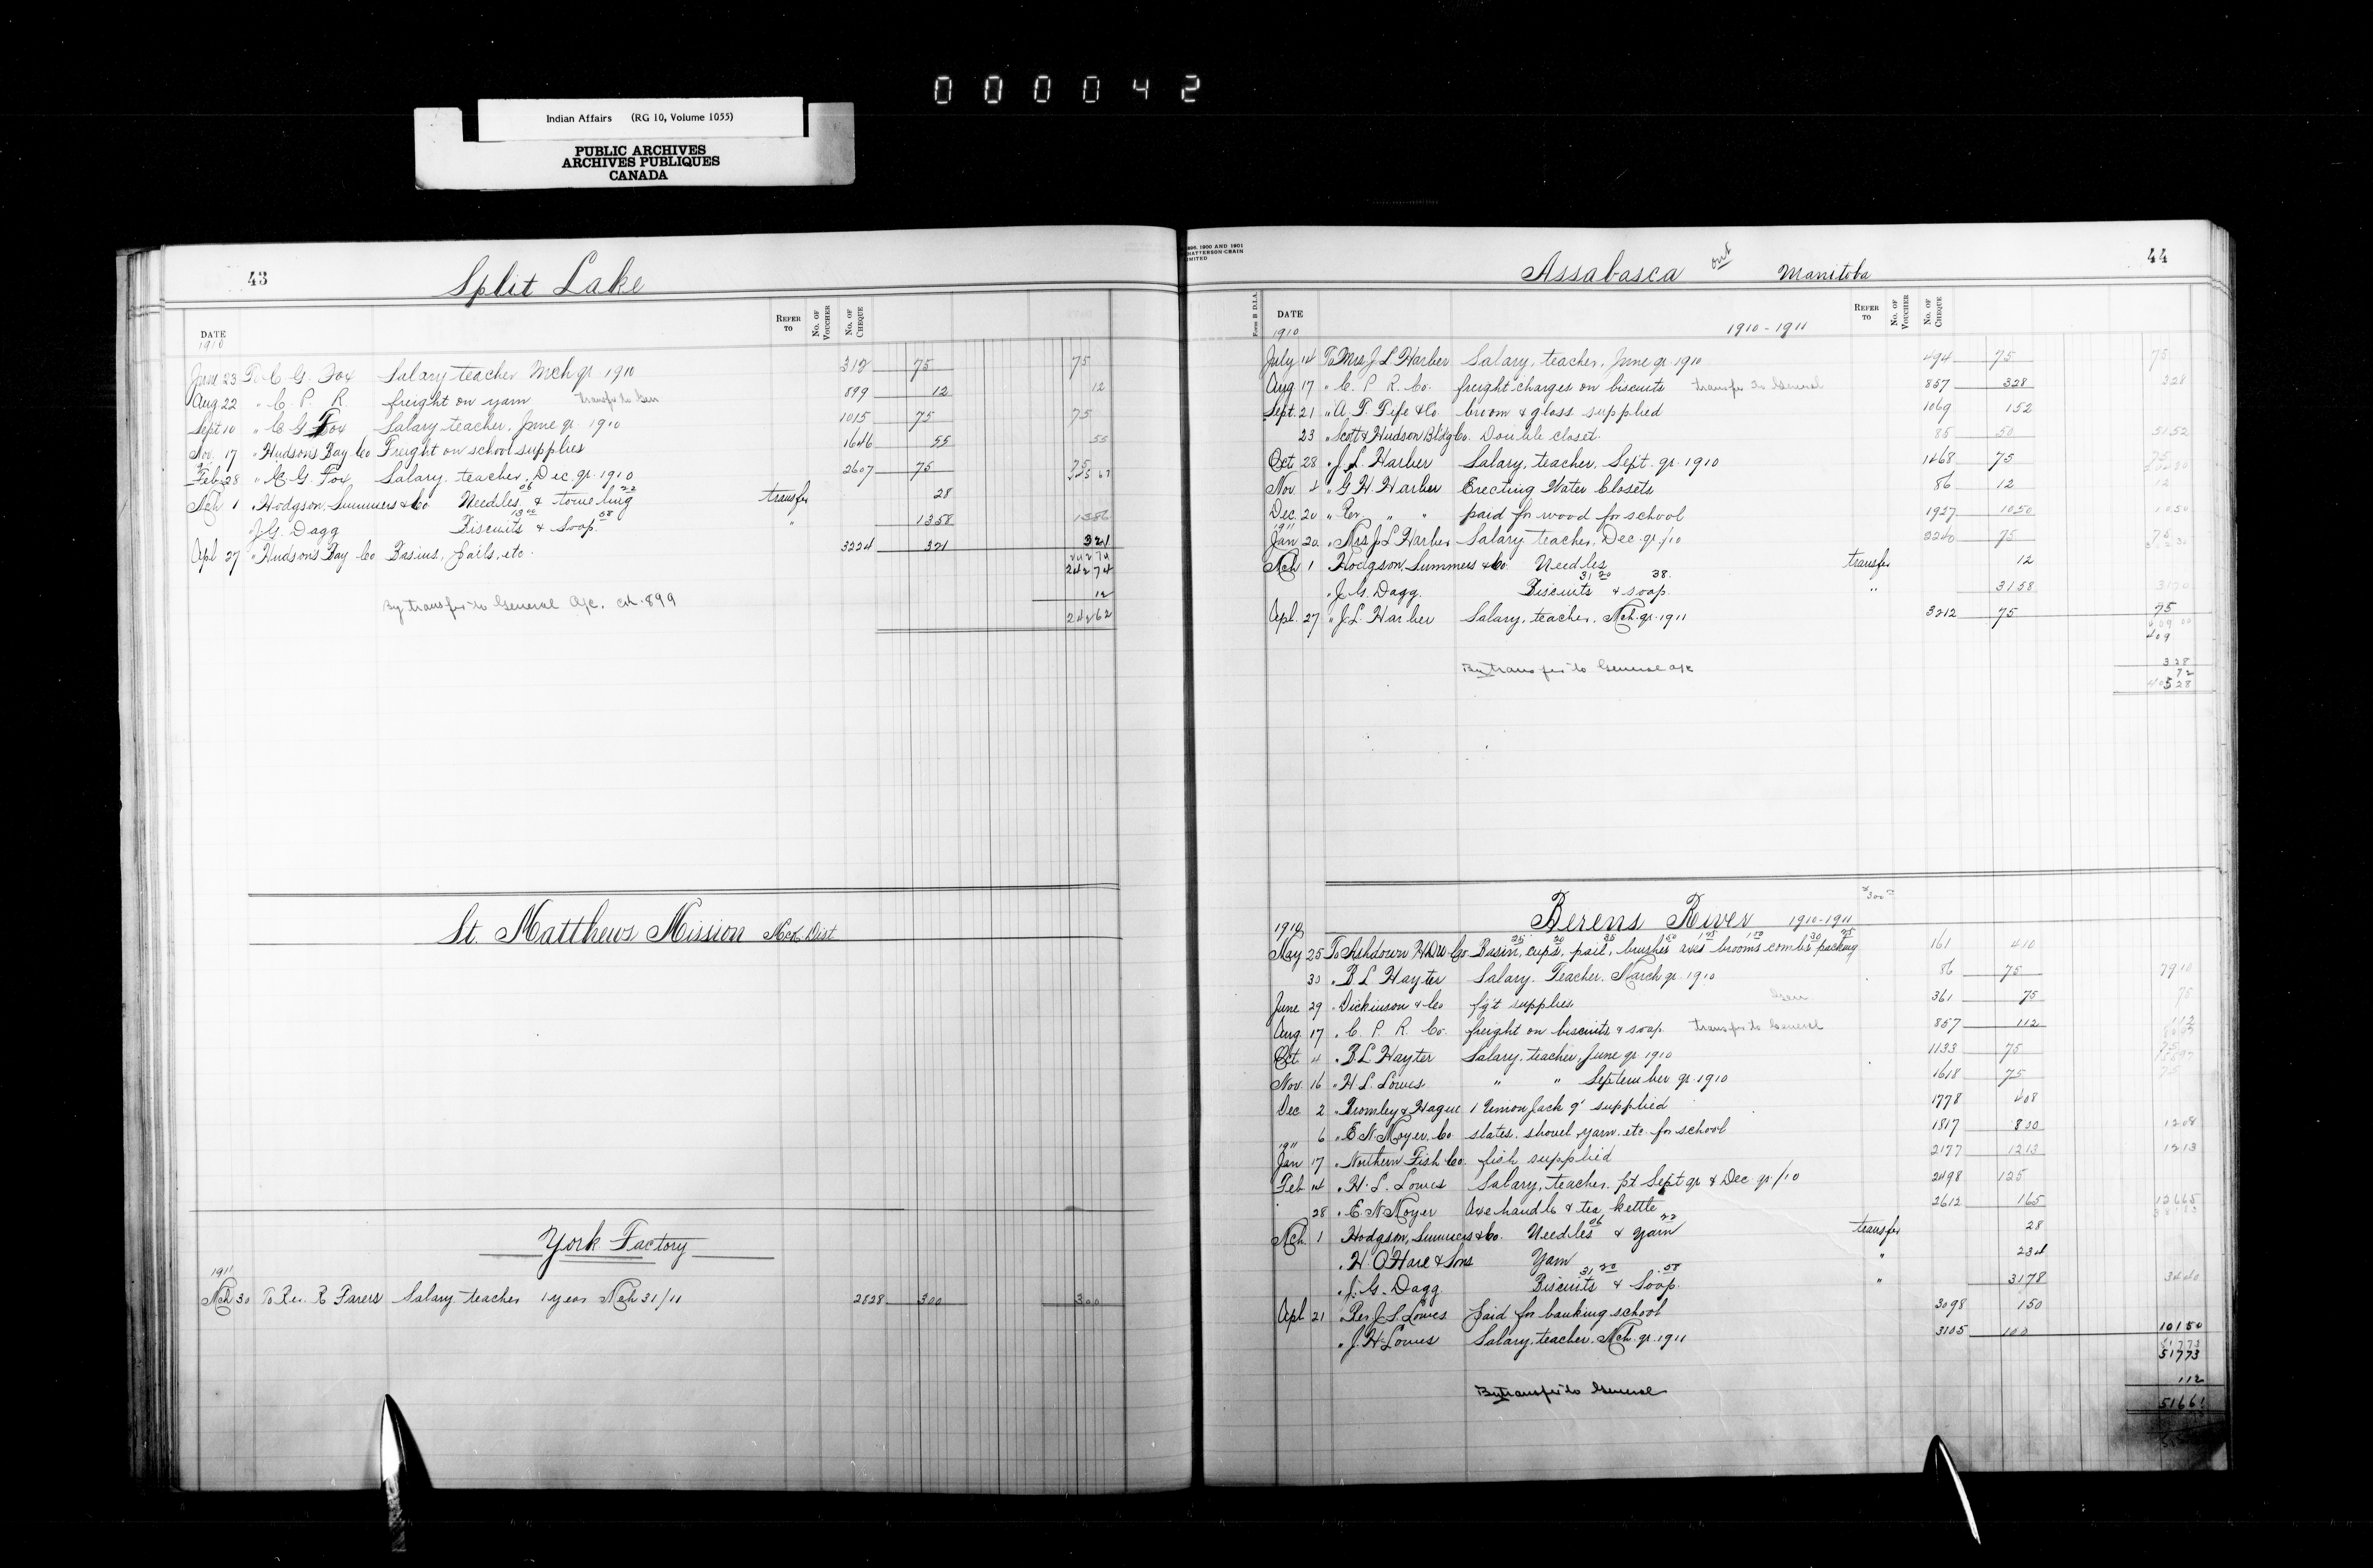 000042
Indian Affairs (RG 10, Volume 1055)
PUBLIC ARCHIVES
ARCHIVES PUBLIQUES
CANADA
43 Split Lake
DATE REFER TO No. OF VOUCHER No. OF CHEQUE
1910
June 23 To C G. Fox Salary teacher Mch qr 1910 312 75 75
Aug 22 " C. P. R. freight on yarn transfer to Gen 899 12 12
Sept 10 " C G Fox Salary teacher, June qr. 1910 1015 75 75
Nov. 17 " Hudsons Bay Co Freight on school supplies 1646 55 55
Feb 28 " C. G. Fox Salary, teacher, Dec. qr. 1910 2607 75 75
06 22
Mch 1 " Hodgson, Summers & Co. Needles & toweling transfer 28
13 00 58
J. G. Dagg Biscuits & Soap " 1358 1386
Apl 27 " Hudsons Bay Co Basins, Pails, etc. 3224 321 321
24274
24274
By transfer to General A/c. ch. 899 12
24262
St. Matthews Mission Mck. Dist
York Factory
1911
Mch 30 To Rev. R Farers Salary teacher 1 year Mch 31/11 2828 300 300
44 Assabasca Ont Manitoba
Form B. D.I.A. DATE REFER TO No. OF VOUCHER No. OF CHEQUE
1910 1910-1911
July 14 To Mrs J L Harber Salary, teacher, June qr. 1910 494 75 75
Aug 17 " C. P. R. Co. freight charges on biscuits transfer to General 857 328 328
Sept. 21 " A. T. Fife & Co. broom & glass supplied 1069 152
23 " Scott & Hudson Bldg Co. Double closet. 85 50 5152
Oct 28 " J. L. Harber Salary, teacher, Sept. qr. 1910 1468 75 75
Nov. 4 " G H. Harber Erecting Water Closets 86 12 12
Dec. 20 " Rev. " " paid for wood for school 1927 1050 1050
1911
Jan 20 " Mrs J L Harber Salary teacher, Dec. qr./10 2240 75 75
Mch 1 Hodgson, Summers & Co. Needles transfer 12
31 20 38
" J. G. Dagg. Biscuits & soap. " 3158 3170
Apl. 27 " J. L. Harber Salary, teacher, Mch. qr. 1911 3212 75 75
409
By transfer to General a/c 328
40528
Berens River 1910-1911 300
1910
May 25 To Ashdown H'DW. Co. Basin, cups, pail, brushes axes brooms combs packing 161 410
30 " B L Hayter Salary. Teacher. March qr. 1910 86 75 7910
June 29 " Dickinson & Co fg't supplies Gen 361 75 75
Aug. 17 " C. P. R. Co. freight on biscuits & soap transfer to General 857 112 112
Oct 4 " B. L. Hayter Salary, teacher, June qr. 1910 1133 75 75
Nov. 16 " H L. Lowes " " September qr. 1910 1618 75 75
Dec 2 " Bromley & Hague 1 Union Jack 9' supplied 1778 408
6 " E N Moyer, Co. slates, shovel, yarn. etc. for school 1817 800 1208
1911
Jan 17 " Northern Fish Co. fish supplied 2177 1213 1213
Feb 14 " H. L. Lowes Salary, teacher. pt Sept qr & Dec qr/10 2498 125
28 " E N Moyer Axe handle & tea kettle 2612 165 12665
06 22
Mch 1 Hodgson, Summers & Co. Needles & Yarn transfer 28
" H. O'Hare & Sons Yarn " 234
31 20 .58
" J. G. Dagg Biscuits & Soap " 3178 3440
Apl 21 " Rev J. L. Lowes Paid for banking school 3098 150
" J. H. Lowes Salary, teacher. Mch. qr. 1911 3105 100 10150
51773
51773
By transfer to General 112
51661